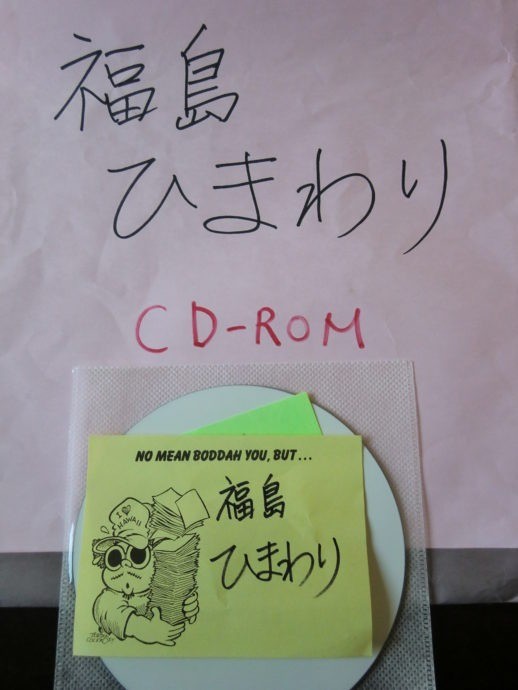 福島
ひまわり
CD-ROM
NO MEAN BODDAH YOU, BUT...
I ♥
HAWAII
福島
ひまわり